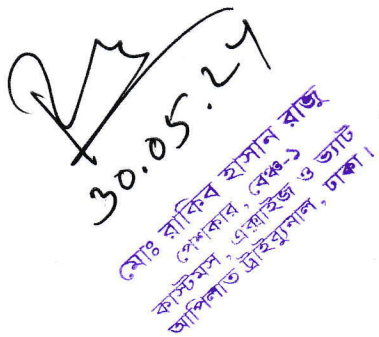 30.05.24
মোঃ রাকিব হাসান রাজু
পেশকার, বেঞ্চ-১
কাস্টমস, এক্সাইজ ও ভ্যাট
আপিলাত ট্রাইব্যুনাল, ঢাকা।